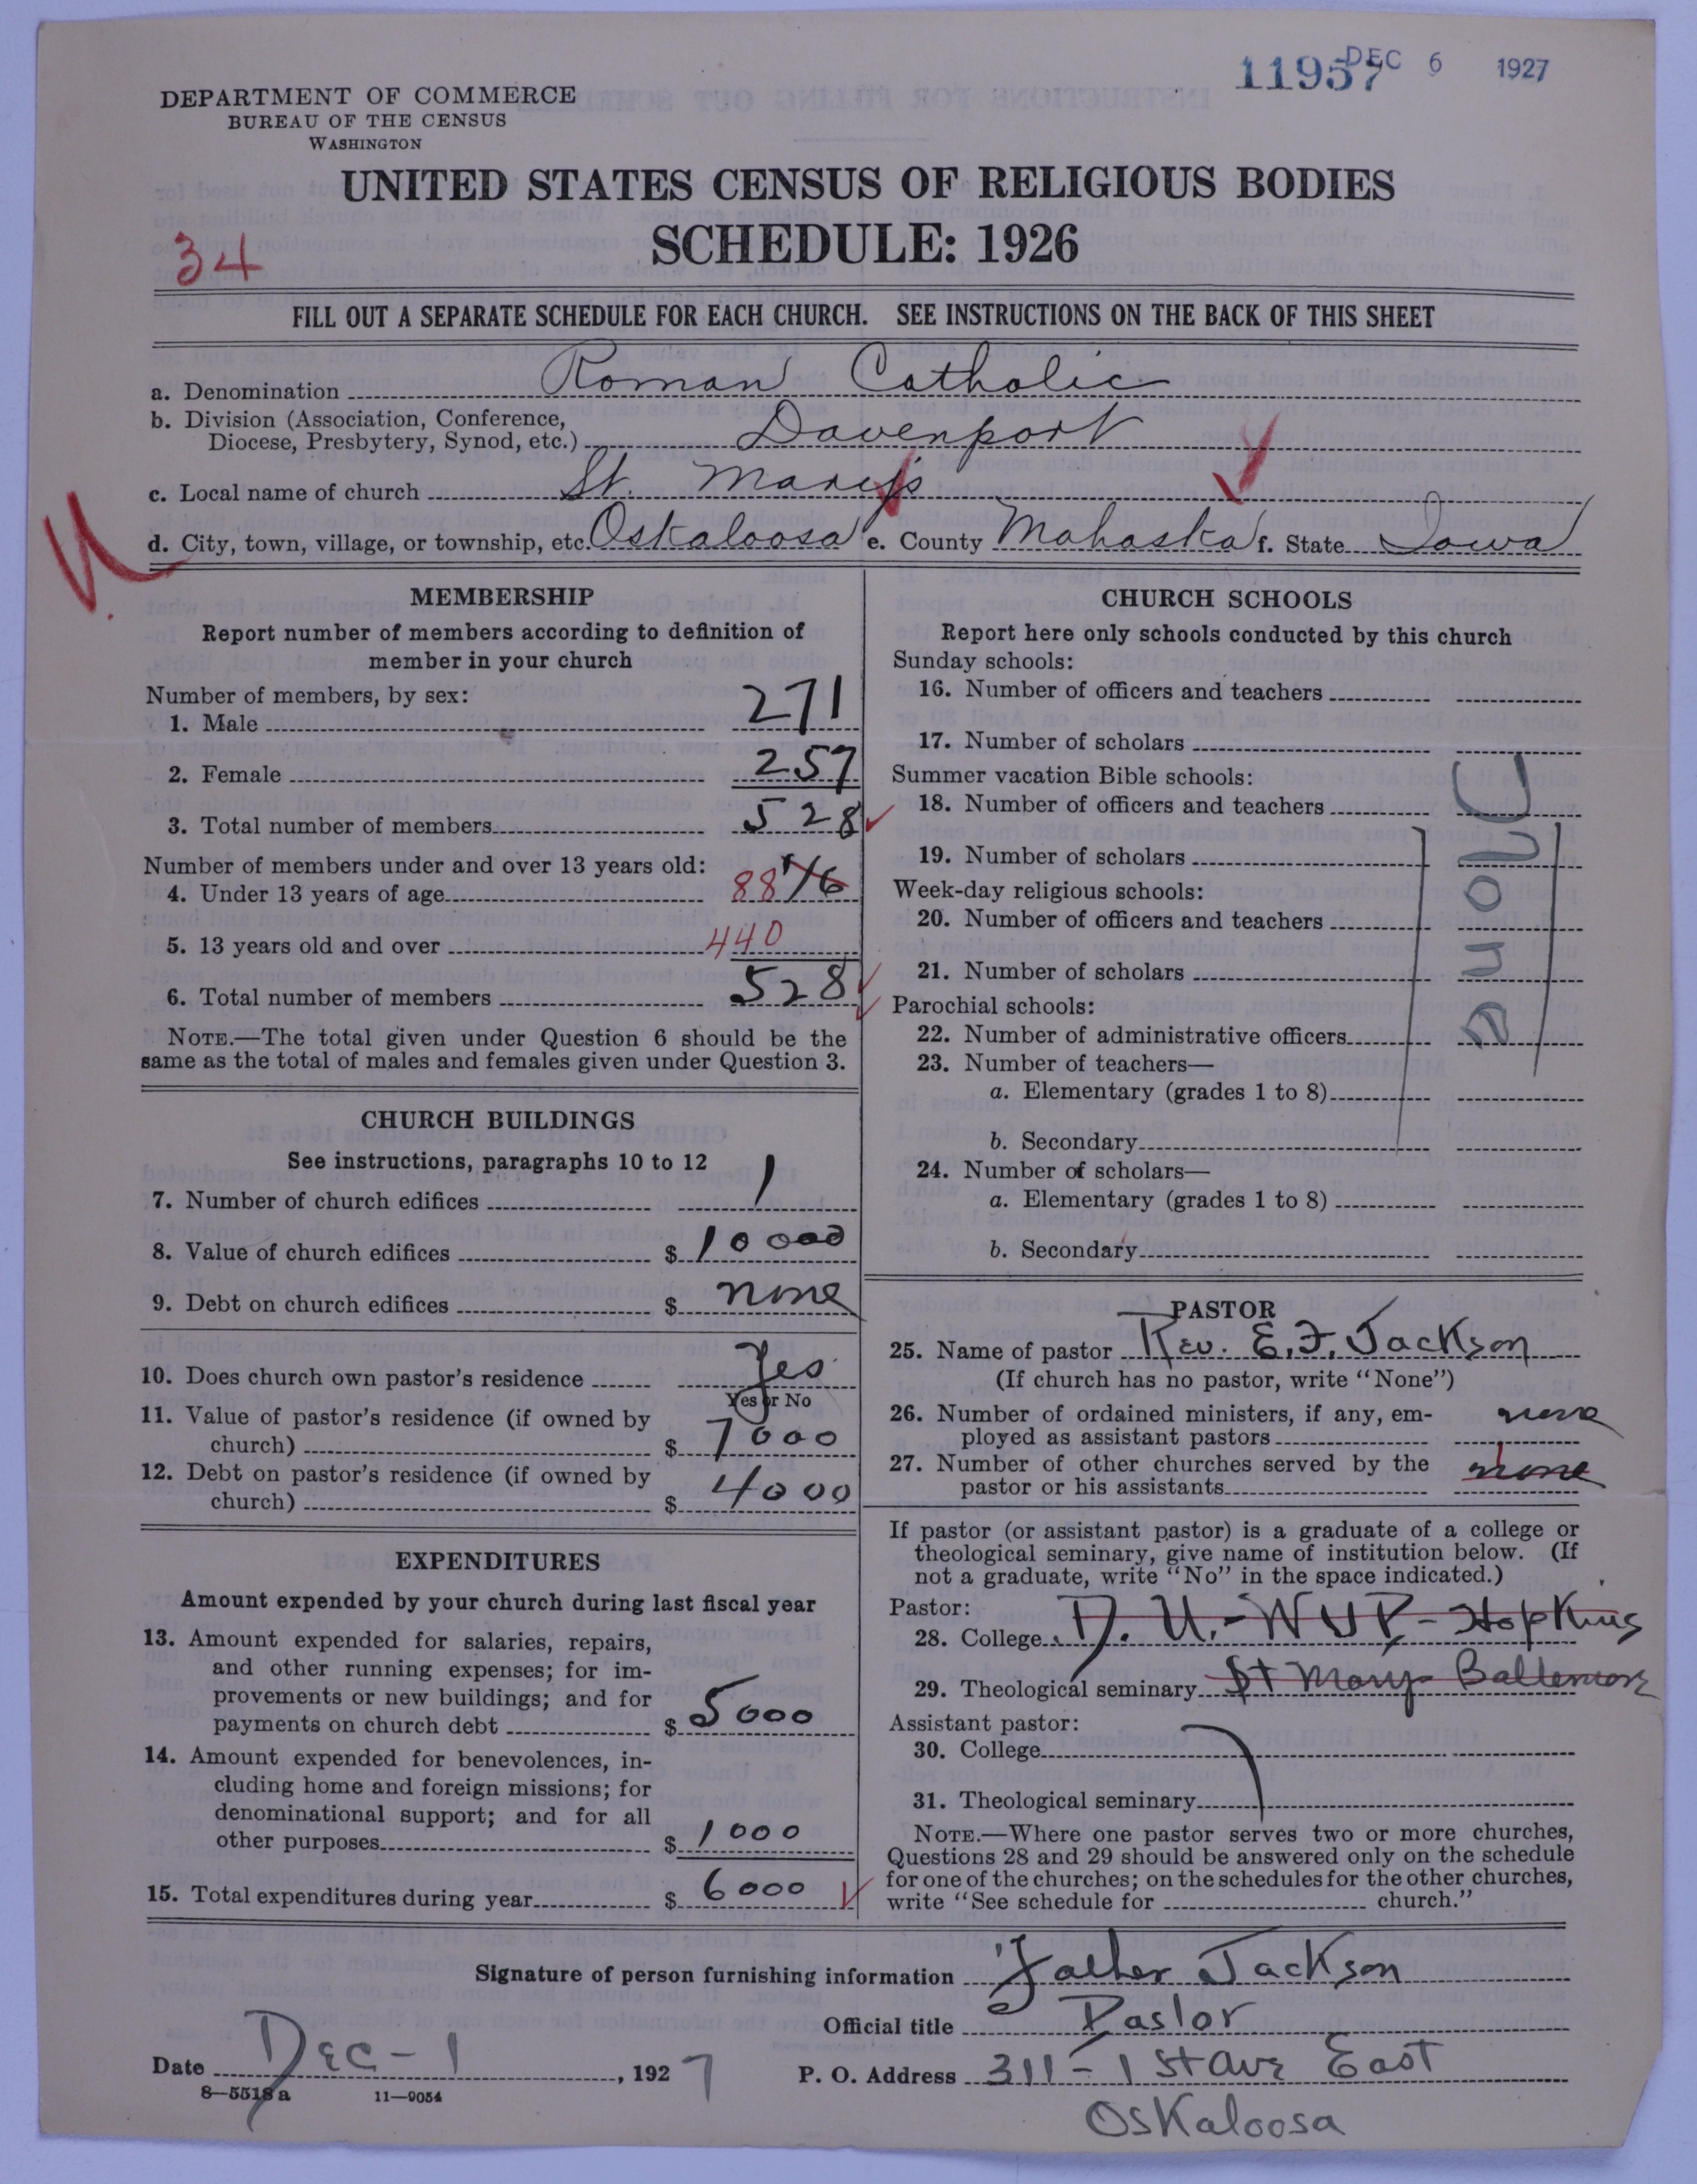 11957 DEC 6 1927
DEPARTMENT OF COMMERCE
BUREAU OF THE CENSUS
WASHINGTON
UNITED STATES CENSUS OF RELIGIOUS BODIES
SCHEDULE: 1926
34
FILL OUT A SEPARATE SCHEDULE FOR EACH CHURCH. SEE INSTRUCTIONS ON THE BACK OF THIS SHEET
a. Denomination Roman Catholic
b. Division (Association, Conference,
Diocese, Presbytery, Synod, etc.) Davenport
c. Local name of church St. Mary's
d. City, town, village, or township, etc. Oskaloosa e. County Mahaska f. State Iowa
MEMBERSHIP
Report number of members according to definition of
member in your church
Number of members, by sex:
1. Male 271
2. Female 257
3. Total number of members 528
Number of members under and over 13 years old:
4. Under 13 years of age 88 1/6
5. 13 years old and over 440
6. Total number of members 528
NOTE.—The total given under Question 6 should be the
same as the total of males and females given under Question 3.
CHURCH BUILDINGS
See instructions, paragraphs 10 to 12
7. Number of church edifices 1
8. Value of church edifices $ 10000
9. Debt on church edifices $ none
10. Does church own pastor's residence Yes
Yes or No
11. Value of pastor's residence (if owned by
church) $ 7000
12. Debt on pastor's residence (if owned by
church) $ 4000
EXPENDITURES
Amount expended by your church during last fiscal year
13. Amount expended for salaries, repairs,
and other running expenses; for im-
provements or new buildings; and for
payments on church debt $ 5000
14. Amount expended for benevolences, in-
cluding home and foreign missions; for
denominational support; and for all
other purposes $ 1000
15. Total expenditures during year $ 6000
CHURCH SCHOOLS
Report here only schools conducted by this church
Sunday schools:
16. Number of officers and teachers
17. Number of scholars
Summer vacation Bible schools:
18. Number of officers and teachers
19. Number of scholars
Week-day religious schools:
20. Number of officers and teachers
21. Number of scholars
Parochial schools:
22. Number of administrative officers
23. Number of teachers—
a. Elementary (grades 1 to 8)
b. Secondary
24. Number of scholars—
a. Elementary (grades 1 to 8)
b. Secondary
None
PASTOR
25. Name of pastor Rev. E.F. Jackson
(If church has no pastor, write "None")
26. Number of ordained ministers, if any, em-
ployed as assistant pastors none
27. Number of other churches served by the
pastor or his assistants none
If pastor (or assistant pastor) is a graduate of a college or
theological seminary, give name of institution below. (If
not a graduate, write "No" in the space indicated.)
Pastor:
28. College D. U. - - Hopkins
29. Theological seminary St Marys Baltemore
Assistant pastor:
30. College
31. Theological seminary
NOTE.—Where one pastor serves two or more churches,
Questions 28 and 29 should be answered only on the schedule
for one of the churches; on the schedules for the other churches,
write "See schedule for church."
Signature of person furnishing information Father Jackson
Official title Pastor
Date Dec - 1, 1927 P. O. Address 311 - 1 st Ave East
8—5518 a 11—9054
Oskaloosa